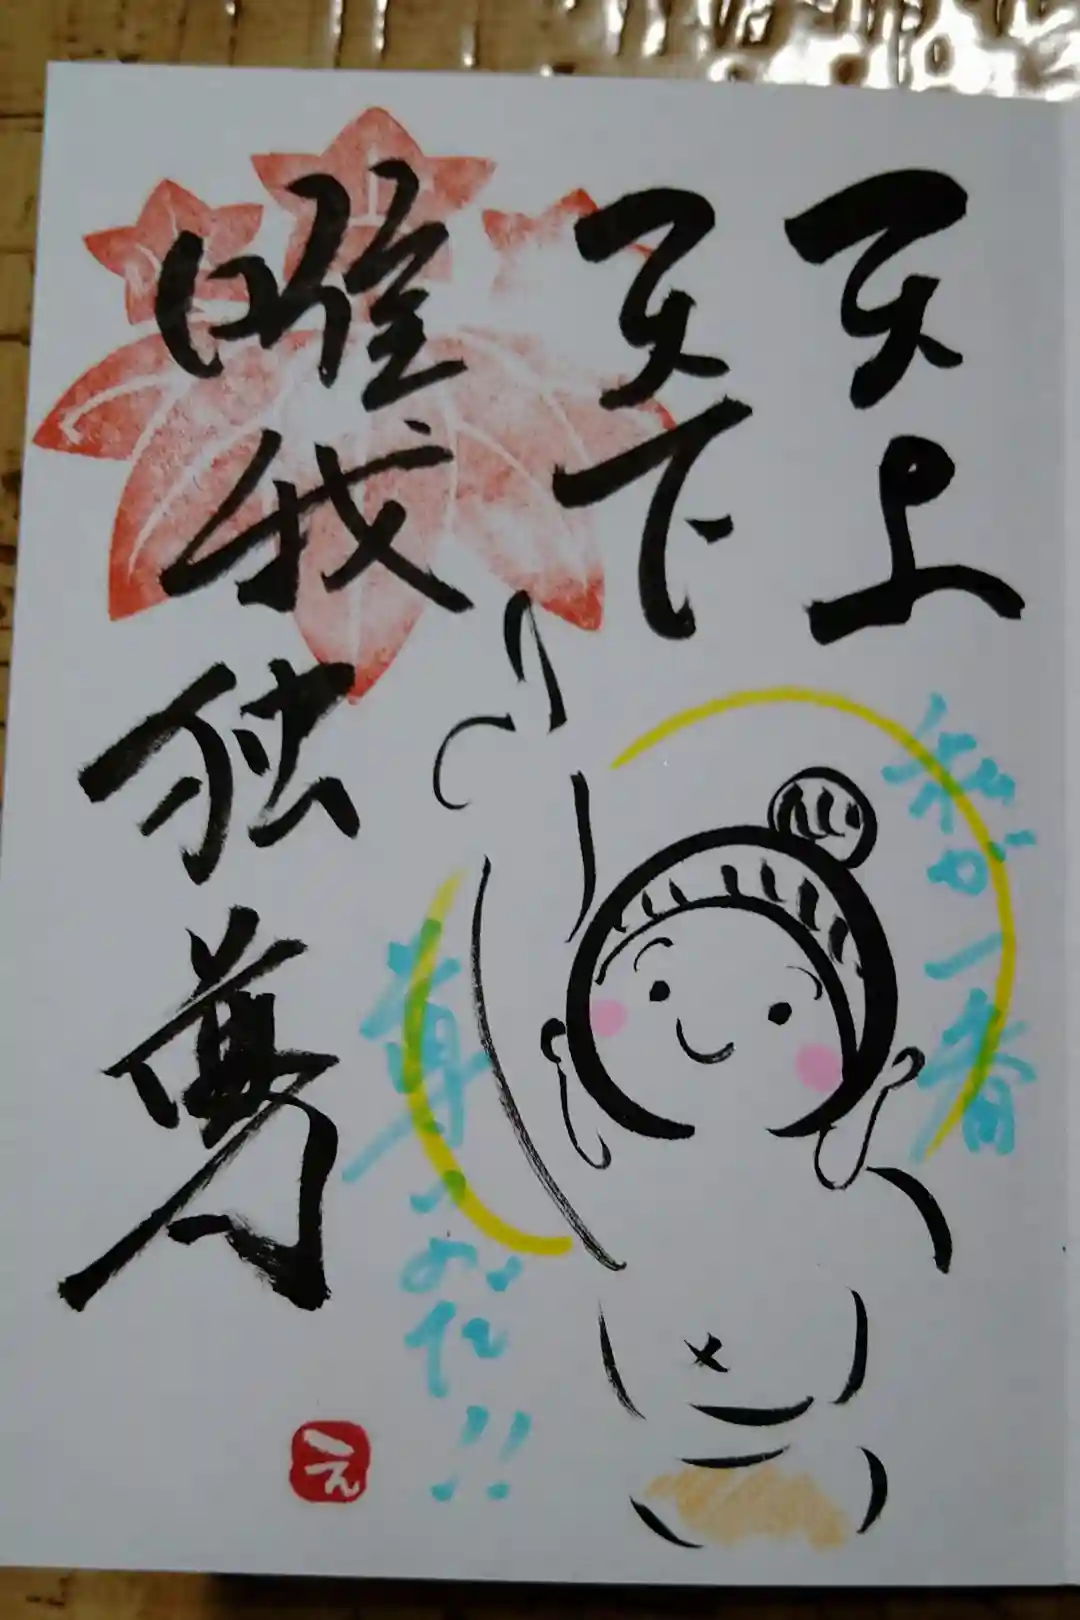 天上
天下
唯我独尊
私が一番
尊いのだ!!
え